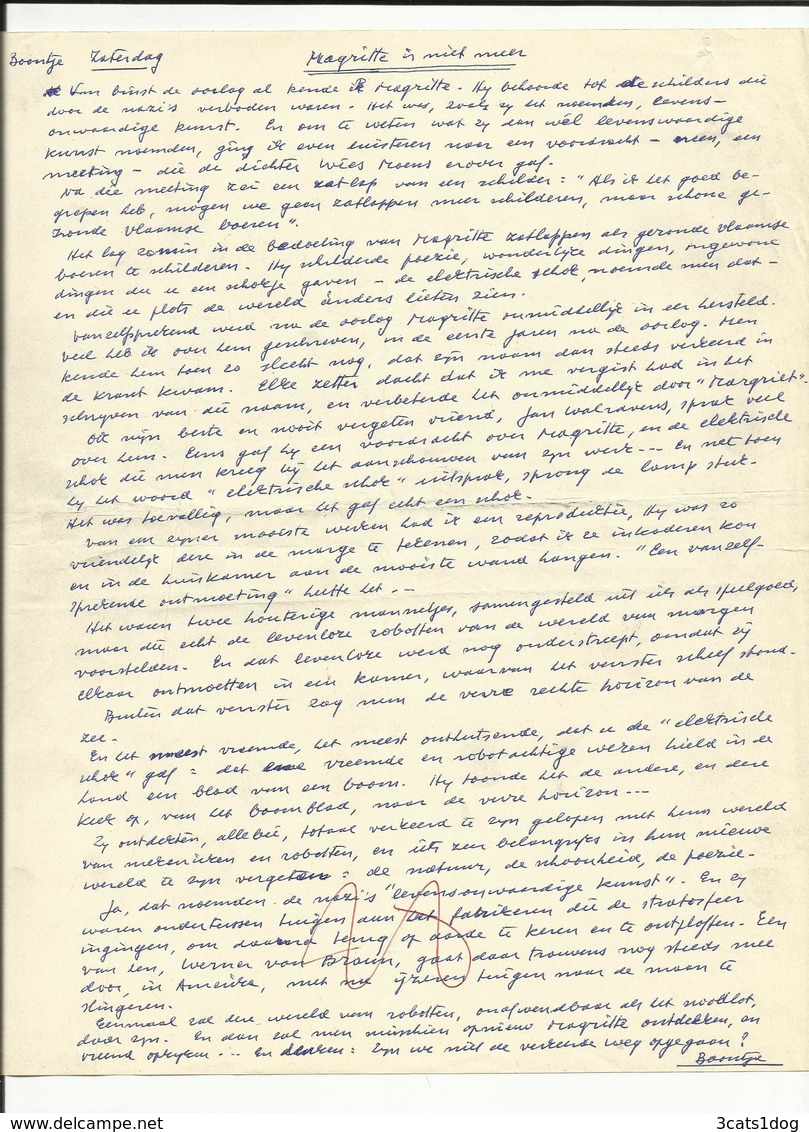 Boontje Zaterdag Magritte is niet meer
Van binst de oorlog al kende ik Magritte. Hij behoorde tot de schilders die
door de nazi's verboden waren. Het was, zoals zij het noemden, levens-
onwaardige kunst. En om te weten wat zij dan wél levenswaardige
kunst noemden, ging ik even luisteren naar een voordracht – neen, een
meeting – die de dichter Wies Moens erover gaf.
Na die meeting zei een zatlap van een schilder: "Als ik het goed be-
grepen heb, mogen we geen zatlappen meer schilderen, maar schone ge-
zonde vlaamse boeren".
Het lag zomin in de bedoeling van Magritte zatlappen als gezonde vlaamse
boeren te schilderen. Hij schilderde poëzie, wonderlijke dingen, ongewone
dingen die u een schokje gaven – de elektrische schok, noemde men dat –
en die u plots de wereld ánders lieten zien.
Vanzelfsprekend werd na de oorlog Magritte onmiddellijk in eer hersteld.
Veel heb ik over hem geschreven, in de eerste jaren na de oorlog. Men
kende hem toen zo slecht nog, dat zijn naam dan steeds verkeerd in
de krant kwam. Elke zetter dacht dat ik me vergist had in het
schrijven van die naam, en verbeterde het onmiddellijk door "Margriet".
Ook mijn beste en nooit vergeten vriend, Jan Walravens, sprak veel
over hem. Eens gaf hij een voordracht over Magritte, en de elektrische
schok die men kreeg bij het aanschouwen van zijn werk... En net toen
hij het woord "elektrische schok" uitsprak, sprong de lamp stuk.
Het was toevallig, maar het gaf echt een schok.
Van een zijner mooiste werken had ik een reproduktie. Hij was zo
vriendelijk deze in de marge te tekenen, zodat ik ze inkaderen kon
en in de huiskamer aan de mooiste wand hangen. "Een vanzelf-
sprekende ontmoeting" heette het...
Het waren twee houterige mannetjes, samengesteld uit iets als speelgoed,
maar die echt de levenloze robotten van de wereld van morgen
voorstelden. En dat levenloze werd nog onderstreept, omdat zij
elkaar ontmoetten in een kamer, waarvan het venster scheef stond.
Buiten dat venster zag men de verre rechte horizon van de
zee.
En het meest vreemde, het meest onthutsende, dat u die "elektrische
schok" gaf: dat vreemde en robotachtige wezen hield in de
hand een blad van een boom. Hij toonde het de andere, en deze
keek op, van het boomblad, naar de verre horizon...
Zij ontdekten, allebei, totaal verkeerd te zijn gelopen met hun wereld
van mekanieken en robotten, en iets zeer belangrijks in hun nieuwe
wereld te zijn vergeten: de natuur, de schoonheid, de poëzie.
Ja, dat noemden de nazi's "levensonwaardige kunst". En zij
waren ondertussen tuigen aan het fabrikeren die de stratosfeer
ingingen, om daarna terug op aarde te keren en te ontploffen. Een
van hen, Werner von Braun, gaat daar trouwens nog steeds mee
door, in Amerika, met me ijzeren tuigen naar de maan te
slingeren.
Eenmaal zal deze wereld van robotten, onafwendbaar als het noodlot,
daar zijn. En dan zal men misschien opnieuw Magritte ontdekken, en
vreemd opkijken... En denken: Zijn we niet de verkeerde weg opgegaan?
Boontje
3cats1dog